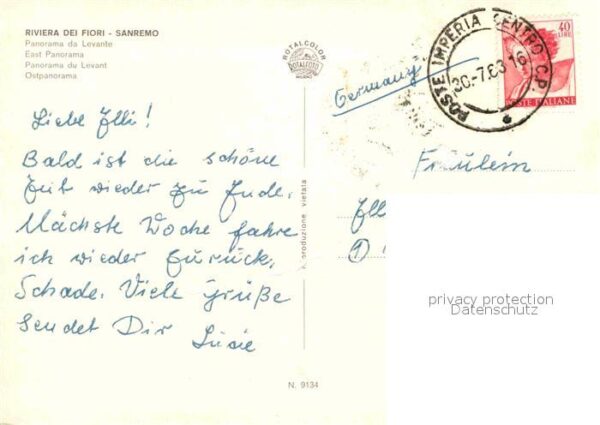 RIVIERA DEI FIORI - SANREMO
Panorama da Levante
East Panorama
Panorama du Levant
Ostpanorama
ROTALCOLOR
ROTALFOTO
MILANO
Liebe Elli!
Bald ist die schöne
Zeit wieder zu Ende.
Nächste Woche fahre
ich wieder zurück,
Schade. Viele Grüße
sendet Dir Lusie
N. 9134
riproduzione vietata
Germany
POSTE IMPERIA CENTRO C.P.
30.-7.63 16
40
LIRE
POSTE ITALIANE
Fräulein
Elli
privacy protection
Datenschutz